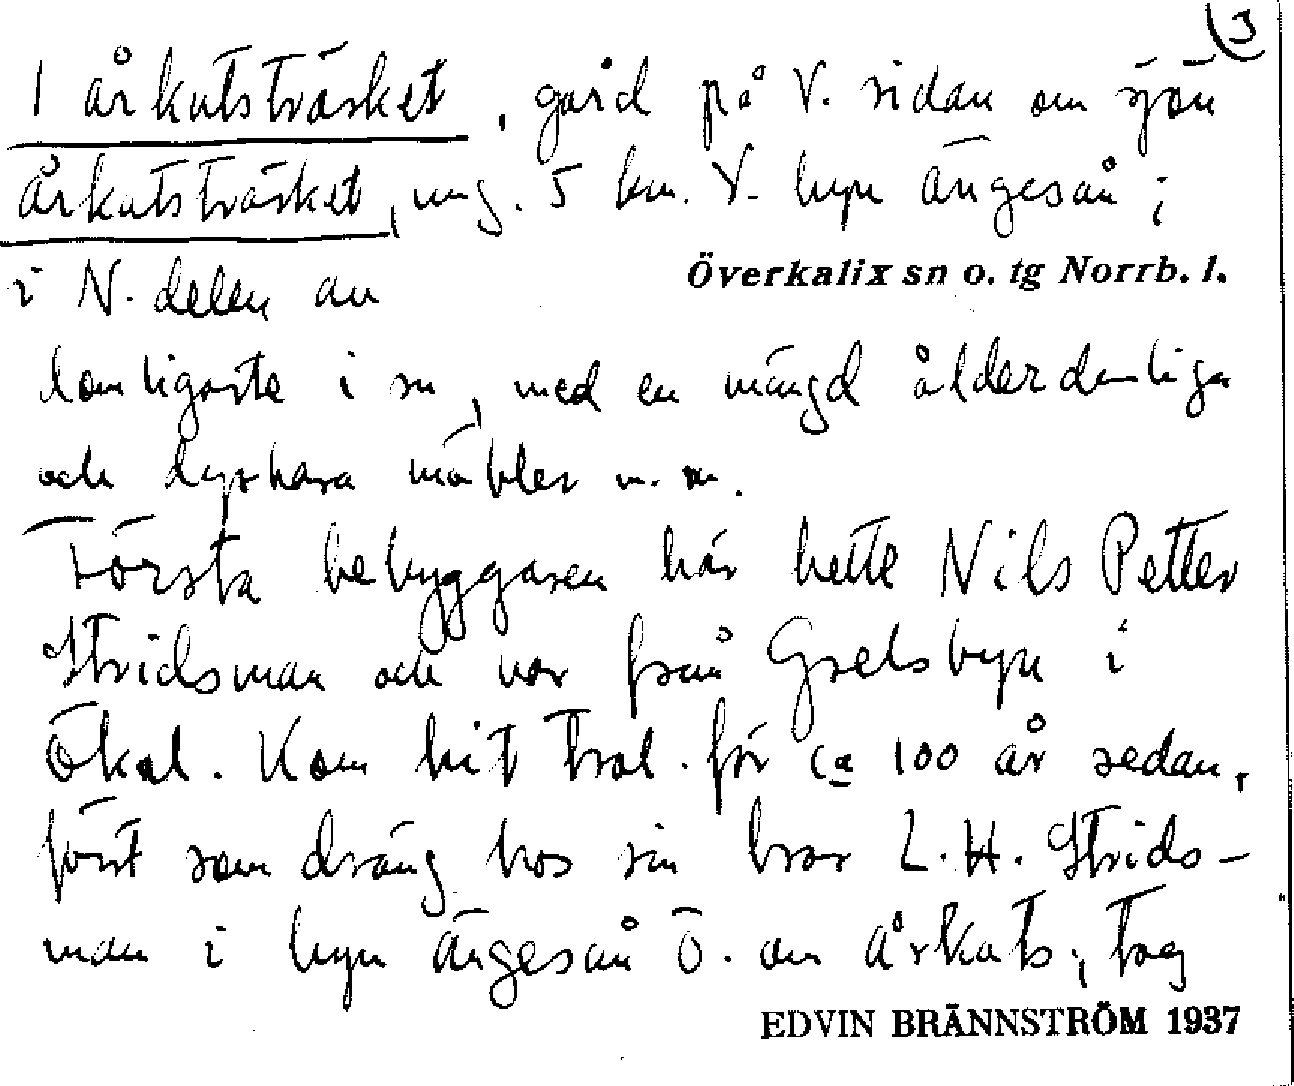 3
1 Årkatsträsket, gård på V. sidan om sjön
Årkatsträsket, ung. 5 km. V. byn Ängeså;
i N. delen av
Överkalix sn o. tg Norrb. l.
i sn, med en mängd ålderdomliga
och dyrbara möbler m. m.
Första bebyggaren här hette Nils Petter
Stridsman och var från Grelsbyn i
Ökal. Kom hit trol. för ca 100 år sedan,
först som dräng hos sin bror L. H. Strids-
man i byn Ängeså Ö. om Årkats.; tog
EDVIN BRÄNNSTRÖM 1937